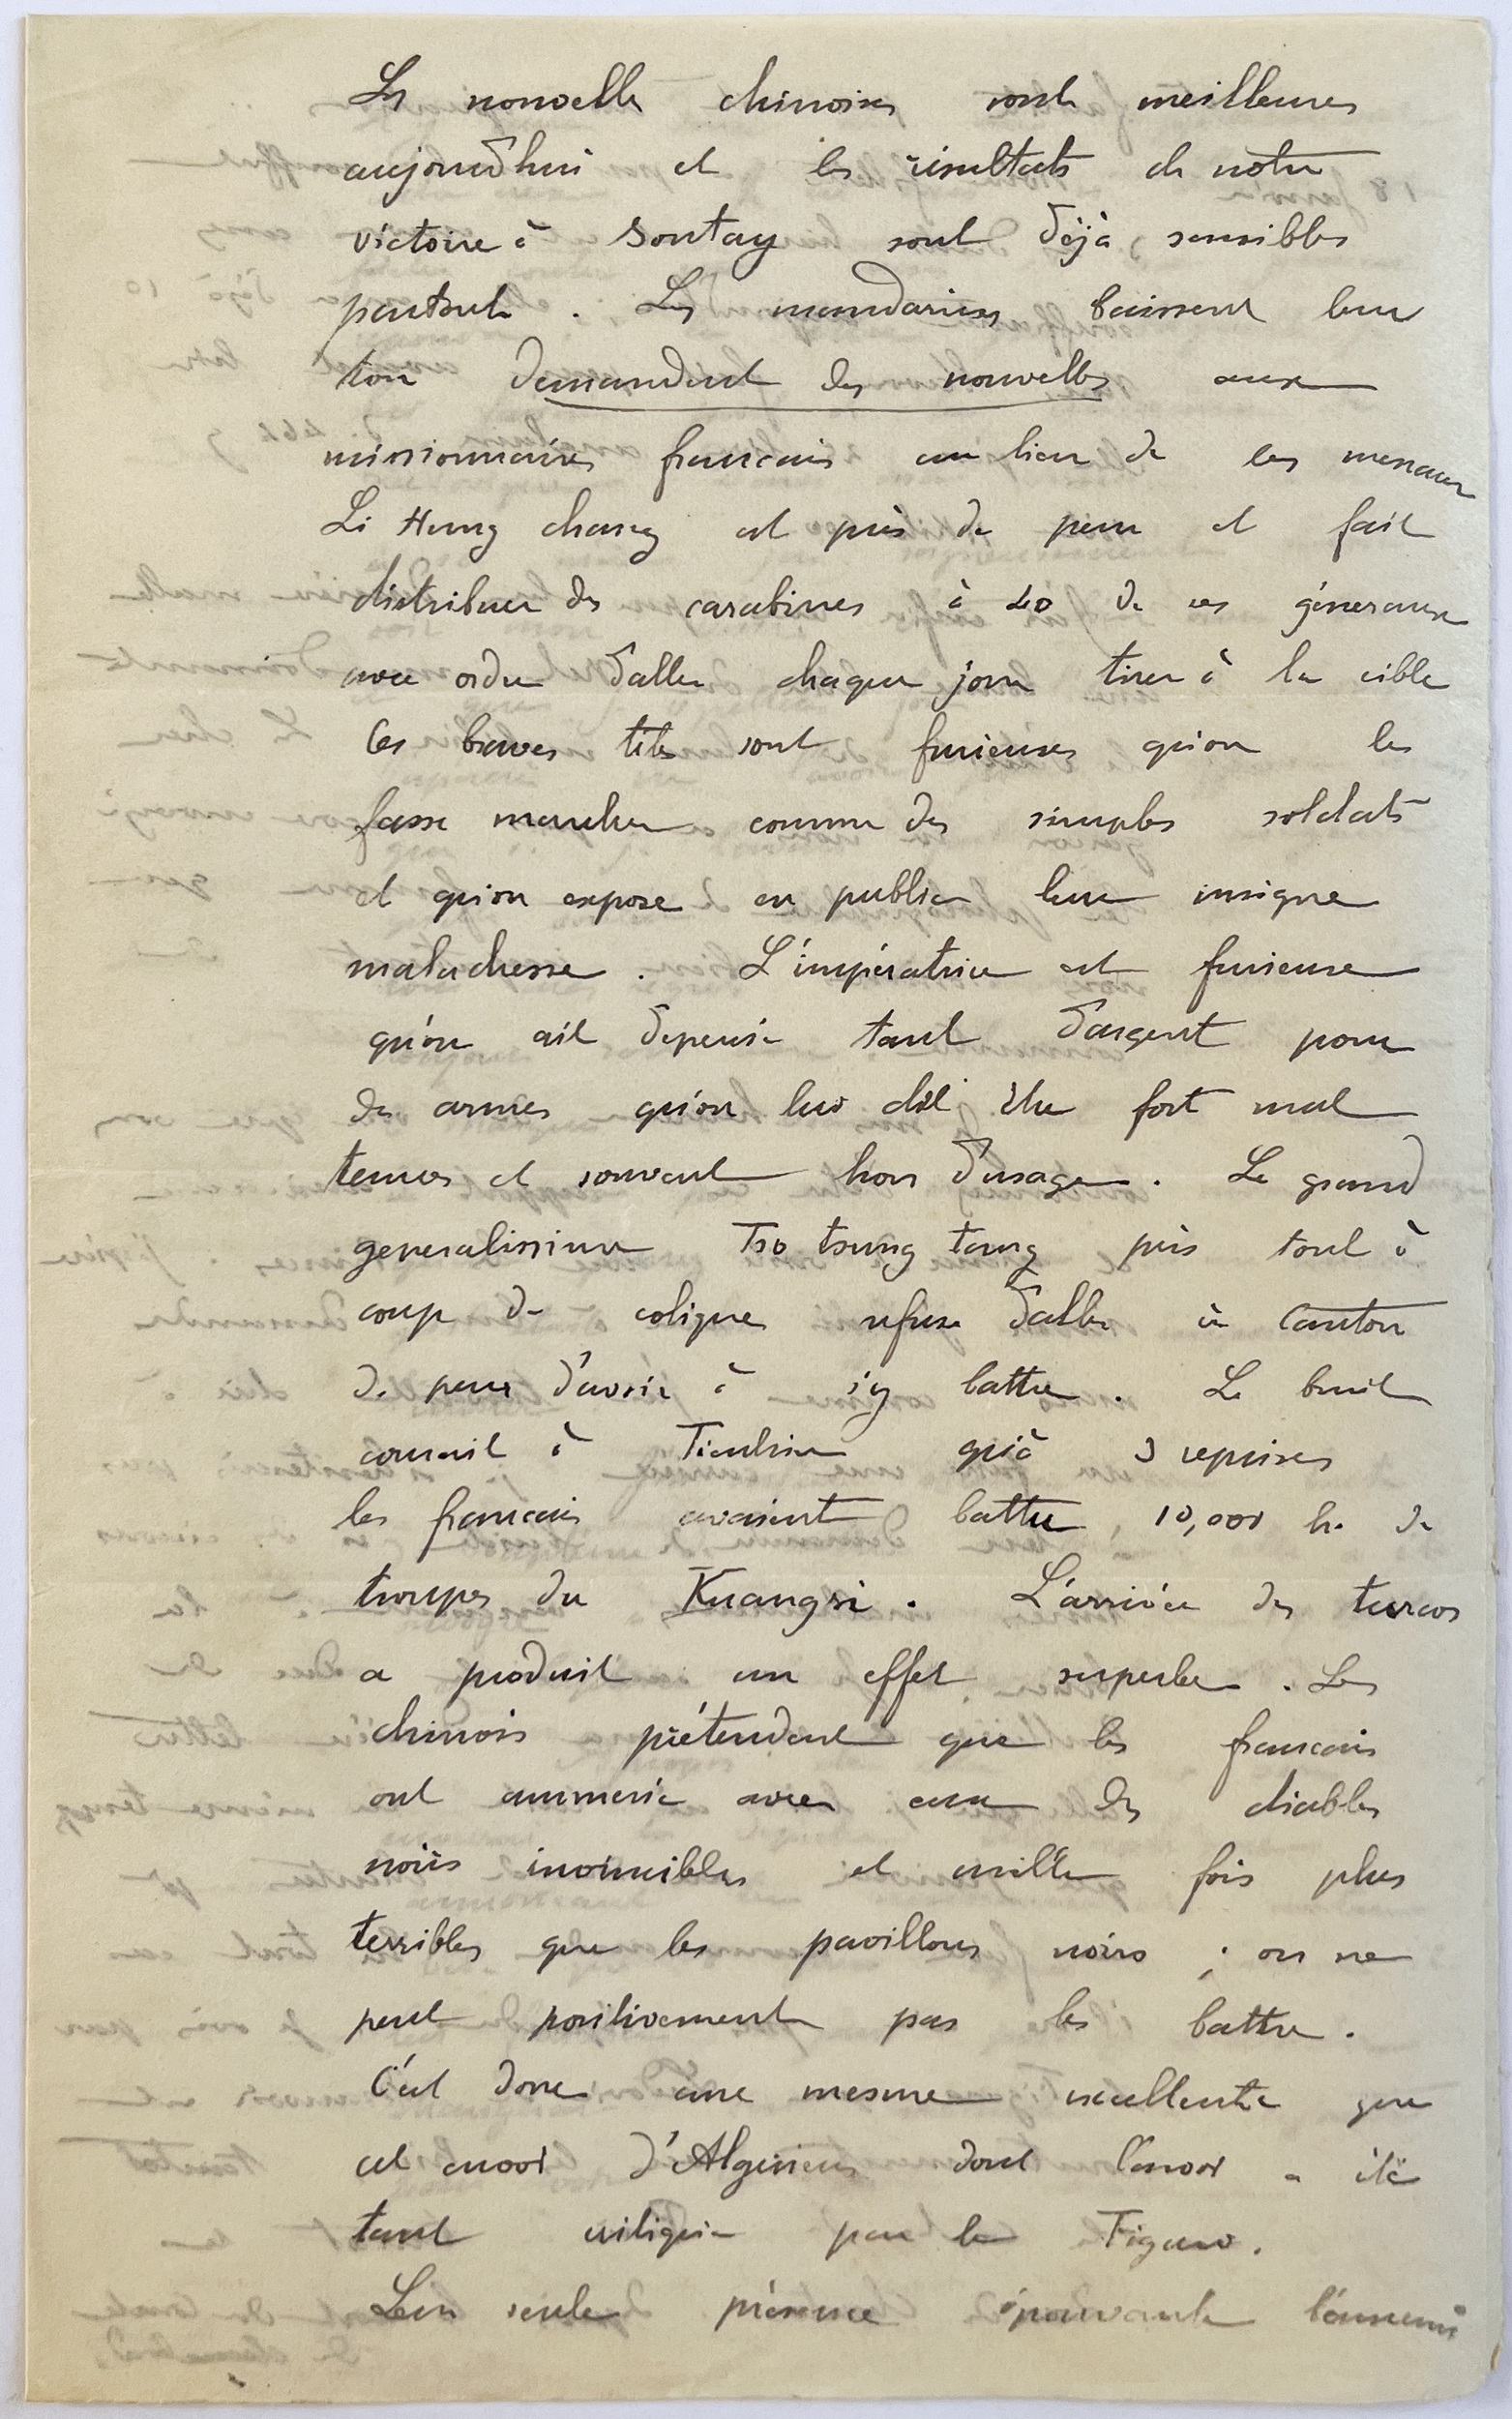 Les nouvelles chinoises sont meilleures
aujourd'hui et les résultats de notre
victoire à Sontay sont déjà sensibles
partout. Les mandarins baissent leur
ton demandent des nouvelles aux
missionnaires francais au lieu de les menacer
Li Hung chang est pris de peur et fait
distribuer des carabines à 40 de ses géneraux
avec ordre d'aller chaque jour tirer à la cible
Ces braves têtes sont furieuses qu'on les
fasse marcher comme des simples soldats
et qu'on expose en public leur insigne
maladresse. L'impératrice est furieuse
qu'on ait depensé tant d'argent pour
des armes qu'on lui dit être fort mal
tenues et souvent hors d'usage. Le grand
generalissime Tso tsung tang pris tout à
coup de coliques refuse d'aller à Canton
de peur d'avoir à s'y battre. Le bruit
courait à Tientsin qu'à 3 reprises
les francais avaient battu 10,000 h. de
troupes du Kuangsi. L'arrivée des turcos
a produit un effet superbe. Les
chinois prétendent que les francais
ont ammené avec eux des diables
noirs invincibles et mille fois plus
terribles que les pavillons noirs ; on ne
peut positivement pas les battre.
C'est donc une mesure excellente que
cet envoi d'Algériens dont l'envoi a été
tant critiqué par le Figaro.
Leur seule présence épouvante l'ennemi